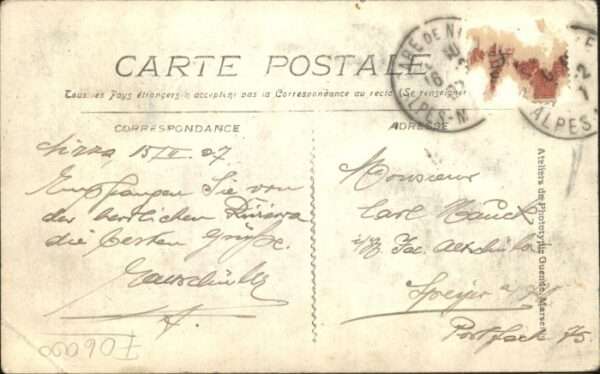 CARTE POSTALE
Tous les Pays étrangers n'acceptent pas la Correspondance au recto (Se renseigner
CORRESPONDANCE
ADRESSE
Nizza 15/II 27
Empfangen Sie von
der herrlichen Riviera
die besten Grüße.
Monsieur
Carl Hauck
Jac. Altschüler
Speyer a/Rh
Postfach 75
GARE DE NI
16
ALPES-M
ALPES
Ateliers de Phototypie Guende, Marseille
F06000